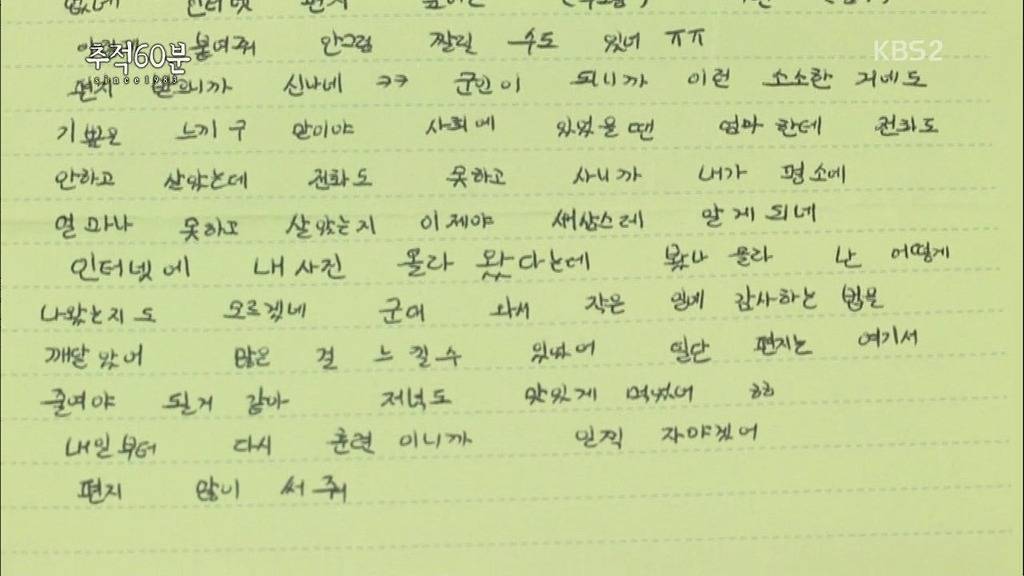 없네 인터넷 편지
추적60분
since1983
KBS2
붙여줘 안그럼 짤릴 수도 있어 ㅠㅠ
편지 받으니까 신나네 ㅋㅋ 군인이 되니까 이런 소소한 거에도
기쁨은 느끼구 말이야 사회에 있었을땐 엄마한테 전화도
안하고 살았는데 전화도 못하고 사니까 내가 평소에
얼마나 못하고 살았는지 이제야 새삼스레 알게되네
인터넷에 내사진 올라 왔다는데 봤나 몰라 난 어떻게
나왔는지도 모르겠네 군에 와서 작은 일에 감사하는 법을
깨달았어 많은 걸 느낄수 있었어 일단 편지는 여기서
줄여야 될거 같아 저녁도 맛있게 먹었어 ㅎㅎ
내일부터 다시 훈련이니까 일찍 자야겠어
편지 많이 써줘